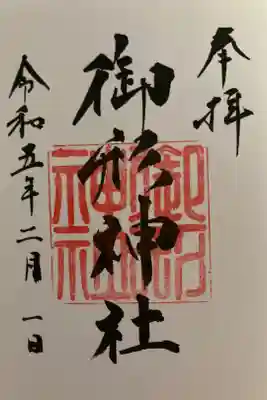 奉拝
御形神社
御形神社
令和五年二月一日